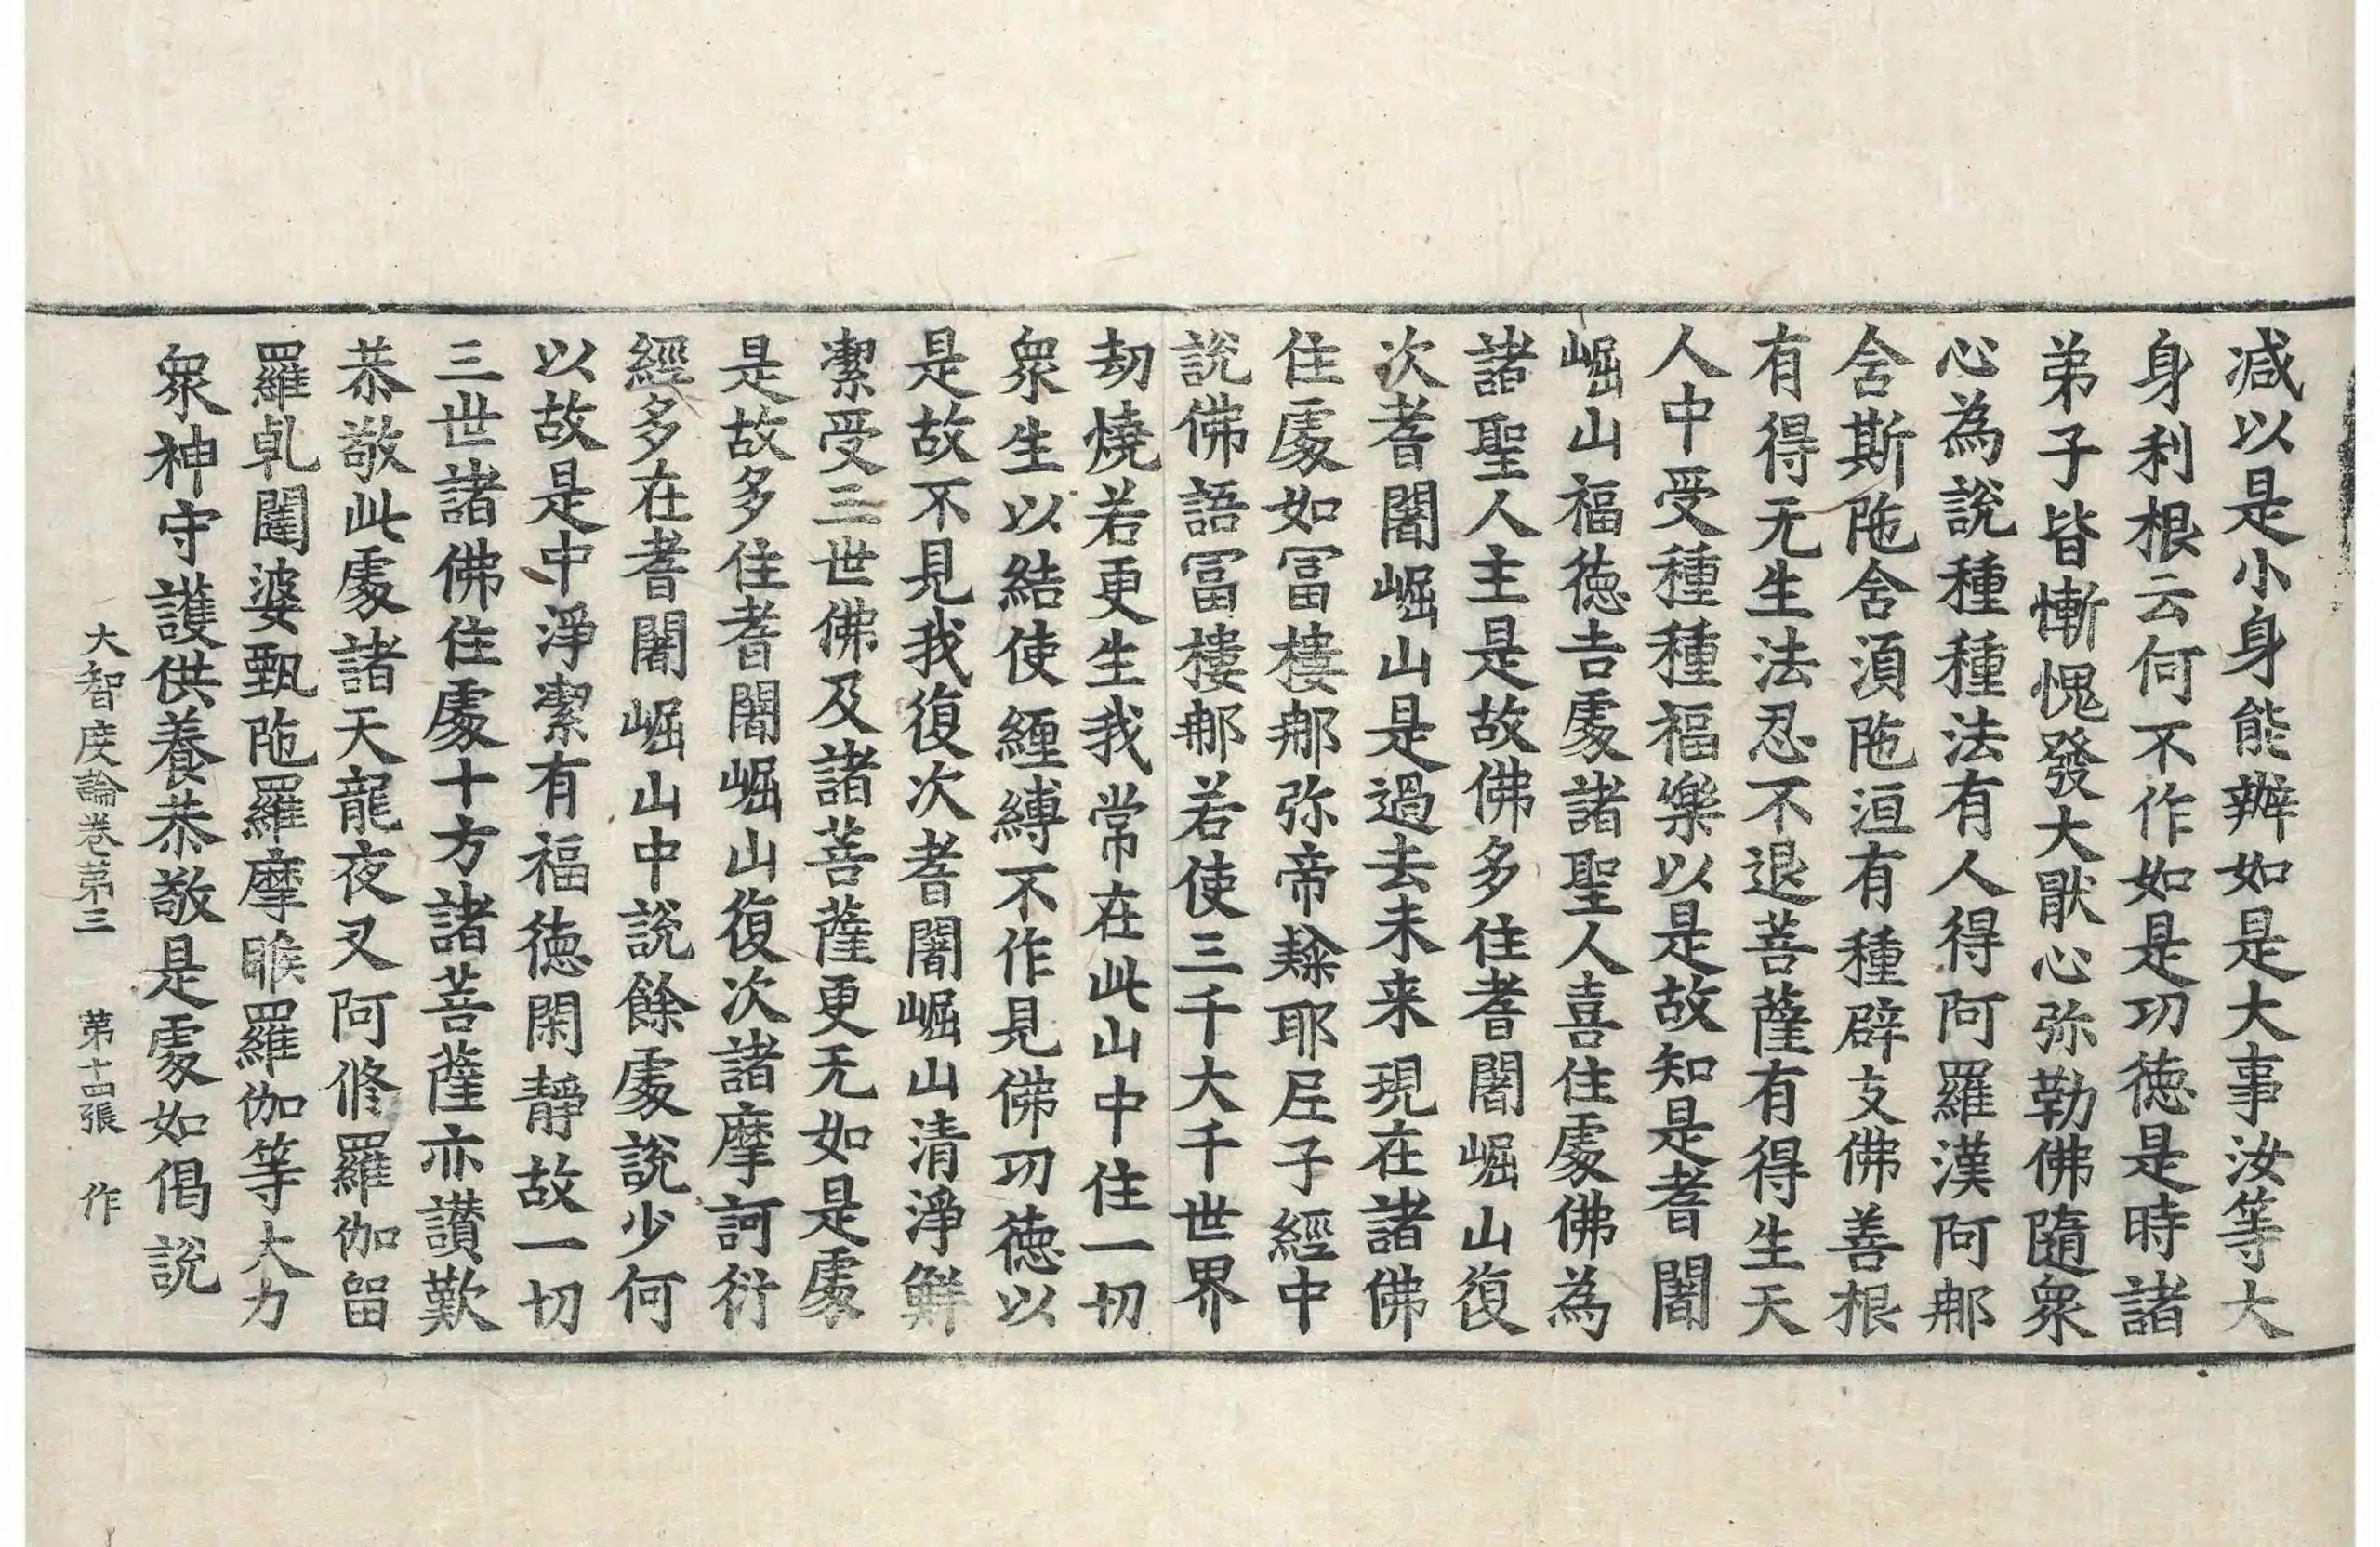 減以是小身能辦如是大事汝等大
身利根云何不作如是功徳是時諸
弟子皆慚愧發大猒心弥勒佛隨衆
心為說種種法有人得阿羅漢阿那
舍斯陁舍湏陁洹有種辟支佛善根
有得无生法忍不退菩薩有得生天
人中受種種福樂以是故知是耆闍
崛山福徳吉處諸聖人喜住處佛為
諸聖人主是故佛多住耆闍崛山復
次耆闍崛山是過去未来現在諸佛
住處如冨樓那弥帝隸耶尼子經中
説佛語冨樓那若使三千大千世界
劫燒若更生我常在此山中住一切
衆生以結使纏縛不作見佛功徳以
是故不見我復次耆闍崛山清淨鮮
潔受三世佛及諸菩薩更无如是處
是故多住耆闍崛山復次諸摩訶衍
經多在耆闍崛山中説餘處說少何
以故是中淨潔有福徳閑靜故一切
三世諸佛住處十方諸菩薩亦讃歎
恭敬此處諸天龍夜叉阿修羅伽留
羅乹闥婆甄陁羅摩睺羅伽等大力
衆神守護供養恭敬是處如偈説
大智度論卷第三 第十四張 作